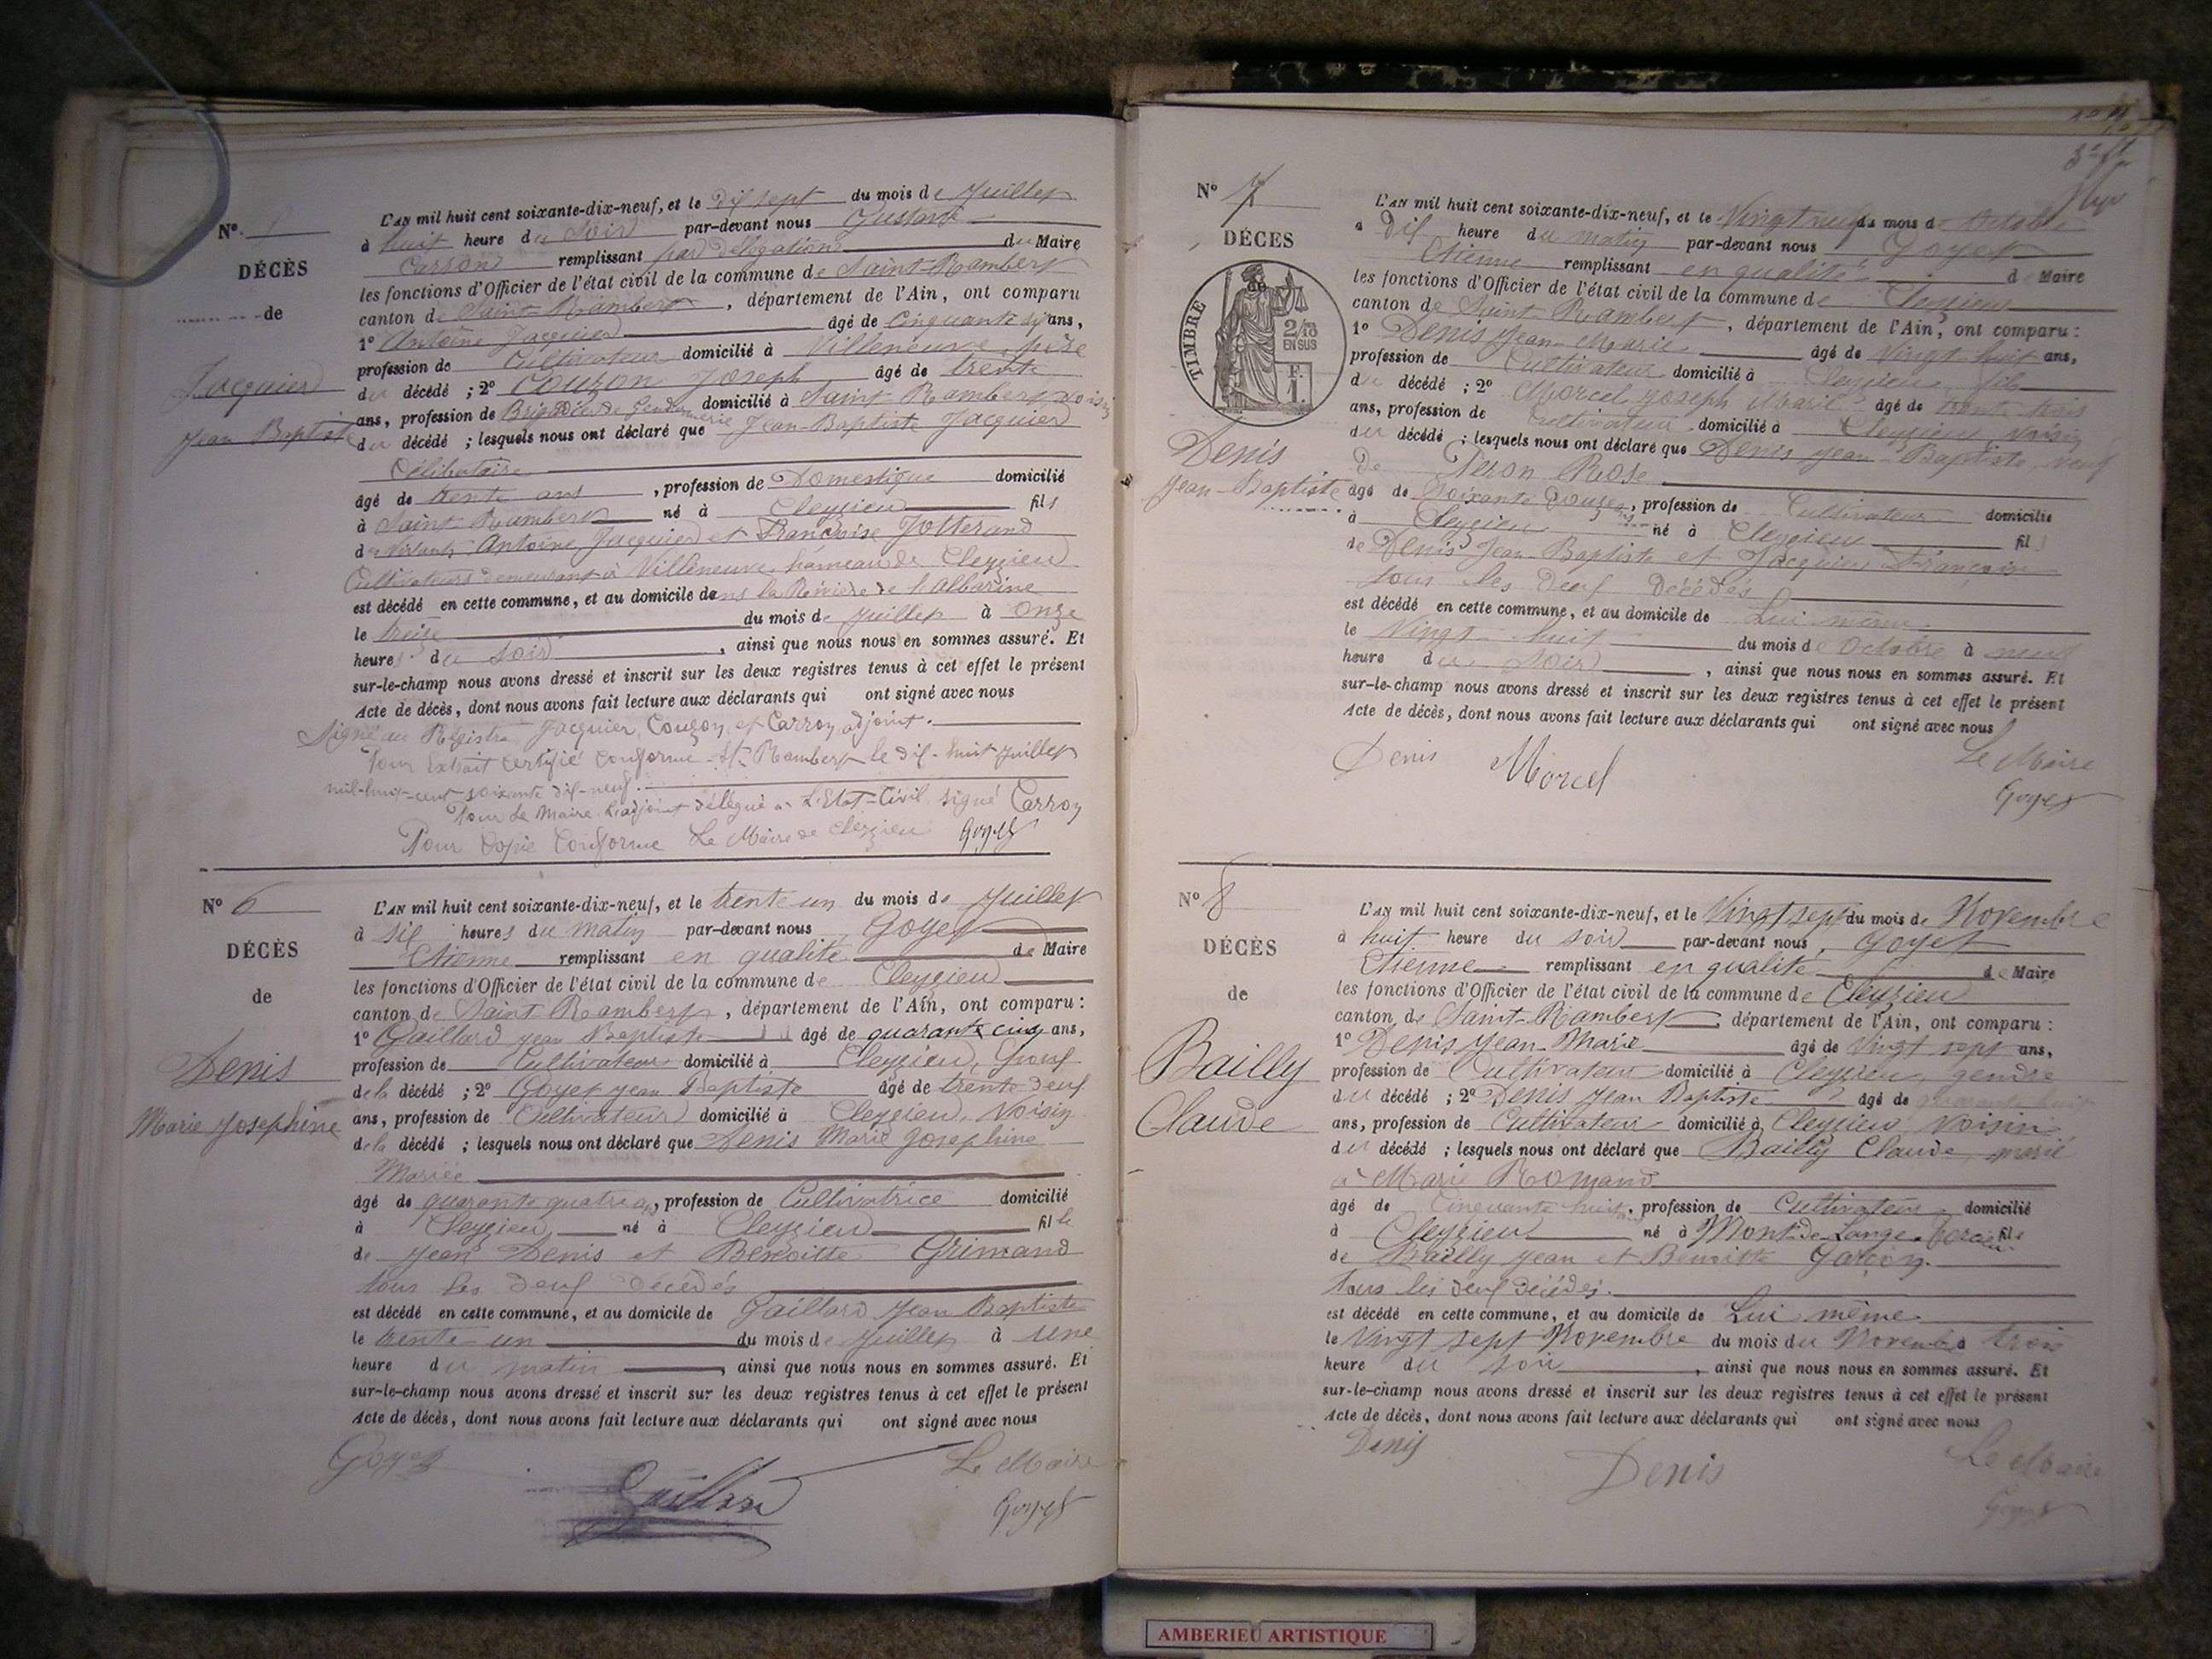 N°
DÉCÈS
de
Jacquier
Jean Baptiste
L'AN mil huit cent soixante-dix-neuf, et le Dix sept du mois de Juillet
à huit heure du soir par-devant nous Gustave
Carron remplissant par délégation du Maire
les fonctions d'Officier de l'état civil de la commune de Saint-Rambert
canton de Saint-Rambert, département de l'Ain, ont comparu
1° Antoine Jacquier âgé de Cinquante six ans,
profession de Cultivateur domicilié à Villeneuve, père
du décédé ; 2° Couzon Joseph âgé de trente
ans, profession de Brigadier de Gendarmerie domicilié à Saint Rambert voisin
du décédé ; lesquels nous ont déclaré que Jean-Baptiste Jacquier
Célibataire
âgé de trente ans, profession de Domestique domicilié
à Saint Rambert né à Cleyzieu fils
de Antoine Jacquier et Françoise Jotterand
Cultivateurs demeurant à Villeneuve hameau de Cleyzieu
est décédé en cette commune, et au domicile dans la Rivière de l'Albarine
le treize du mois de Juillet à onze
heures du soir, ainsi que nous nous en sommes assuré. Et
sur-le-champ nous avons dressé et inscrit sur les deux registres tenus à cet effet le présent
Acte de décès, dont nous avons fait lecture aux déclarants qui ont signé avec nous
Signé au Registre Jacquier, Couzon et Carron adjoint.
Pour Extrait certifié conforme St Rambert le dix-huit Juillet
mil-huit-cent-soixante dix-neuf.
Pour Le Maire L'adjoint délégué à L'Etat-Civil signé Carron
Pour Copie Conforme Le Maire de Cleyzieu Goyet
N° 6
DÉCÈS
de
Denis
Marie Josephine
L'AN mil huit cent soixante-dix-neuf, et le trente un du mois de Juillet
à six heures du matin par-devant nous Goyet
Etienne remplissant en qualité de Maire
les fonctions d'Officier de l'état civil de la commune de Cleyzieu
canton de Saint Rambert, département de l'Ain, ont comparu :
1° Gaillard Jean Baptiste âgé de quarante cinq ans,
profession de Cultivateur domicilié à Cleyzieu, Epoux
de la décédé ; 2° Goyet Jean Baptiste âgé de trente deux
ans, profession de Cultivateur domicilié à Cleyzieu, Voisin
de la décédé ; lesquels nous ont déclaré que Denis Marie Josephine
Mariée
âgé de quarante quatre ans, profession de Cultivatrice domicilié
à Cleyzieu né à Cleyzieu fille
de Jean Denis et Benoitte Grimand
tous les deux décédés
est décédé en cette commune, et au domicile de Gaillard Jean Baptiste
le trente un du mois de Juillet à une
heure du matin, ainsi que nous nous en sommes assuré. Et
sur-le-champ nous avons dressé et inscrit sur les deux registres tenus à cet effet le présent
Acte de décès, dont nous avons fait lecture aux déclarants qui ont signé avec nous
Goyet Gaillard Le Maire
Goyet
N° 7
DÉCES
TIMBRE
2/10
EN SUS
F.
1.
Denis
Jean-Baptiste
L'AN mil huit cent soixante-dix-neuf, et le Vingt neuf du mois de Octobre
à Dix heure du matin par-devant nous Goyet
Etienne remplissant en qualité de Maire
les fonctions d'Officier de l'état civil de la commune de Cleyzieu
canton de Saint Rambert, département de l'Ain, ont comparu :
1° Denis Jean-Marie âgé de Vingt huit ans,
profession de Cultivateur domicilié à Cleyzieu, fils
du décédé ; 2° Morcel Joseph Marie âgé de trente trois
ans, profession de Cultivateur domicilié à Cleyzieu, Voisin
du décédé ; lesquels nous ont déclaré que Denis Jean Baptiste, veuf
de Peron Rose
âgé de Soixante Douze ans, profession de Cultivateur domicilié
à Cleyzieu né à Cleyzieu fils
de Denis Jean-Baptiste et Jacquier Françoise
tous les deux décédés
est décédé en cette commune, et au domicile de Lui même
le Vingt huit du mois de Octobre à neuf
heure du soir, ainsi que nous nous en sommes assuré. Et
sur-le-champ nous avons dressé et inscrit sur les deux registres tenus à cet effet le présent
Acte de décès, dont nous avons fait lecture aux déclarants qui ont signé avec nous
Denis Morcel Le Maire
Goyet
N° 8
DÉCÈS
de
Bailly
Claude
L'AN mil huit cent soixante-dix-neuf, et le Vingt sept du mois de Novembre
à huit heure du soir par-devant nous Goyet
Etienne remplissant en qualité de Maire
les fonctions d'Officier de l'état civil de la commune de Cleyzieu
canton de Saint-Rambert, département de l'Ain, ont comparu :
1° Denis Jean-Marie âgé de Vingt sept ans,
profession de Cultivateur domicilié à Cleyzieu, gendre
du décédé ; 2° Denis Jean Baptiste âgé de quarante huit
ans, profession de Cultivateur domicilié à Cleyzieu Voisin
du décédé ; lesquels nous ont déclaré que Bailly Claude, marié
à Marie Romand
âgé de Cinquante huit, profession de Cultivateur domicilié
à Cleyzieu né à Mont de Lange fils
de Bailly Jean et Benoitte Garçon.
Tous les deux décédés.
est décédé en cette commune, et au domicile de Lui même
le Vingt sept Novembre du mois du Novembre trois
heure du soir, ainsi que nous nous en sommes assuré. Et
sur-le-champ nous avons dressé et inscrit sur les deux registres tenus à cet effet le présent
Acte de décès, dont nous avons fait lecture aux déclarants qui ont signé avec nous
Denis Denis Le Maire
Goyet
AMBERIEU ARTISTIQUE